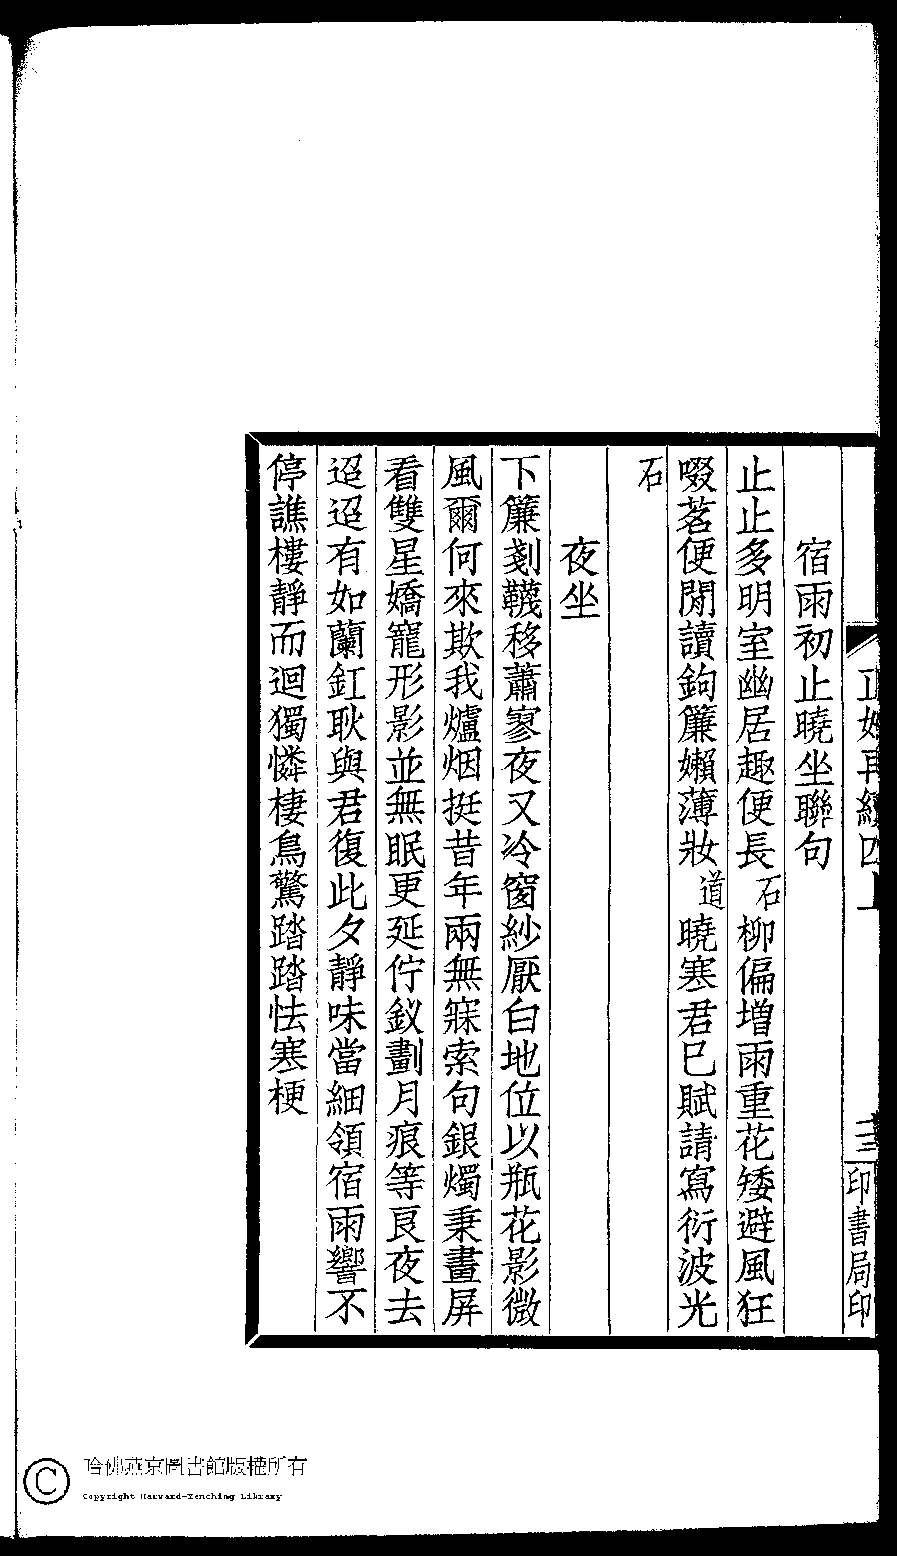 宿雨初止曉坐聯句
止止多明室幽居趣便長石柳偏增雨重花矮避風狂
啜茗便閒讀鉤簾嬾薄妝道曉寒君已賦請寫衍波光
石
夜坐
下簾剗韈移蕭寥夜又冷窗紗厭白地位以瓶花影微
風爾何來欺我爐烟挺昔年兩無寐索句銀燭秉畫屏
看雙星嬌寵形影並無眠更延佇釵劃月痕等良夜去
迢迢有如蘭釭耿與君復此夕靜味當細領宿雨響不
停譙樓靜而迥獨憐棲鳥驚踏踏怯寒梗
印書局印
哈佛燕京圖書館版權所有
Copyright Harvard-Yenching Library